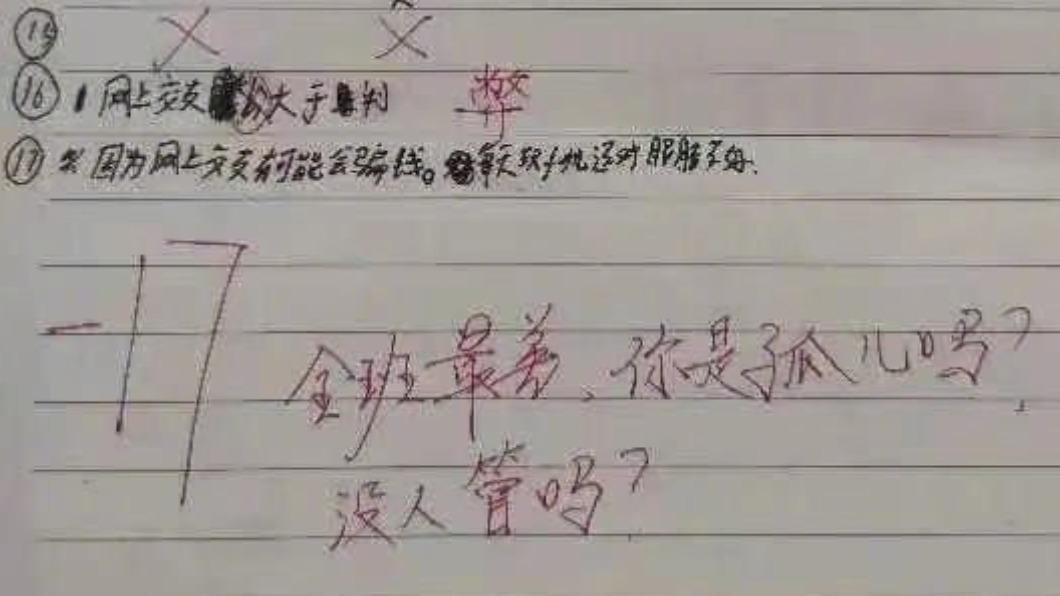 ⑮ X X
⑯ 1 网上交友 大于判 弊
⑰ 因为网上交友有可能会骗钱。天玩手机还对眼睛不好.
-17
全班最差、你是孤儿吗?
没人管吗?